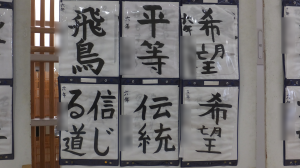 希望
平等
飛鳥
希望
伝統
信じ
る道